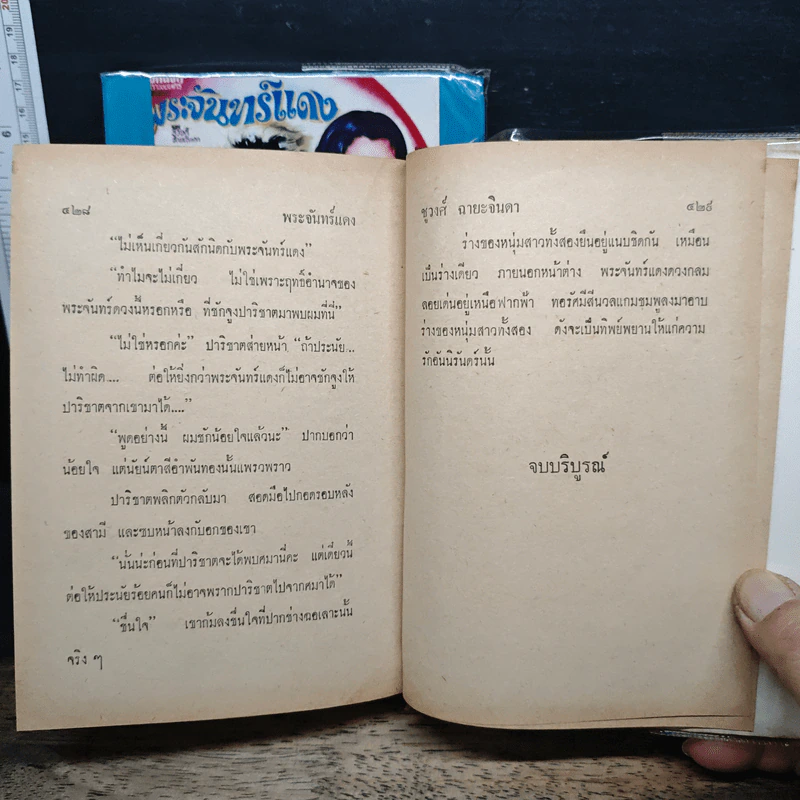 พระจันทร์แดง
๔๒๘ พระจันทร์แดง
“ไม่เห็นเกี่ยวกันสักนิดกับพระจันทร์แดง”
“ทำไมจะไม่เกี่ยว ไม่ใช่เพราะฤทธิ์อำนาจของ
พระจันทร์ดวงนี้หรอกหรือ ที่ชักจูงปาริชาตมาพบผมที่นี่”
“ไม่ใช่หรอกค่ะ” ปาริชาตส่ายหน้า “ถ้าประนัย...
ไม่ทำผิด.... ต่อให้ยิ่งกว่าพระจันทร์แดงก็ไม่อาจชักจูงให้
ปาริชาตจากเขามาได้....”
“พูดอย่างนี้ ผมชักน้อยใจแล้วนะ” ปากบอกว่า
น้อยใจ แต่นัยน์ตาสีอำพันทองนั้นแพรวพราว
ปาริชาตพลิกตัวกลับมา สอดมือไปกอดรอบหลัง
ของสามี และซบหน้าลงกับอกของเขา
“นั่นน่ะก่อนที่ปาริชาตจะได้พบศมานี่คะ แต่เดี๋ยวนี้
ต่อให้ประนัยร้อยคนก็ไม่อาจพรากปาริชาตไปจากศมาได้”
“ชื่นใจ” เขาก้มลงชื่นใจที่ปากช่างฉอเลาะนั้น
จริง ๆ
ชูวงศ์ ฉายะจินดา ๔๒๙
ร่างของหนุ่มสาวทั้งสองยืนอยู่แนบชิดกัน เหมือน
เป็นร่างเดียว ภายนอกหน้าต่าง พระจันทร์แดงดวงกลม
ลอยเด่นอยู่เหนือฟากฟ้า ทอรัศมีสีนวลแกมชมพูลงมาอาบ
ร่างของหนุ่มสาวทั้งสอง ดังจะเป็นทิพย์พยานให้แก่ความ
รักอันนิรันดร์นั้น
จบบริบูรณ์